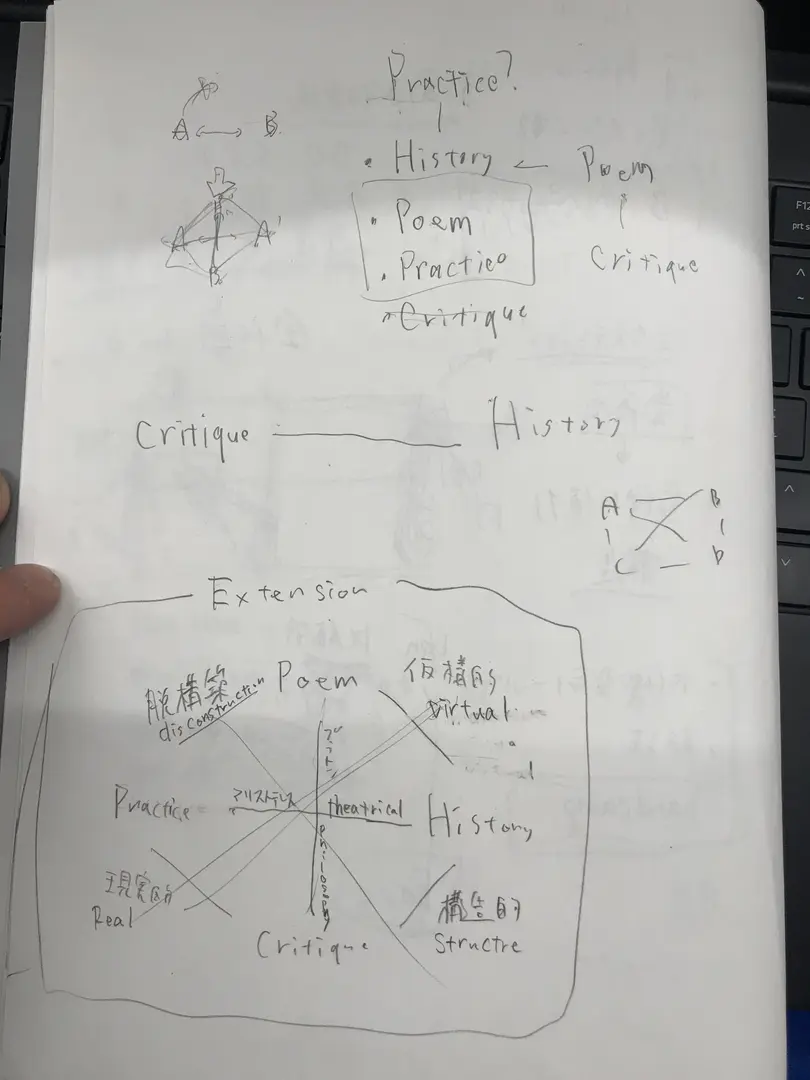 Practice?
A B
History
Poem
Poem
A A'
B
Practice
Critique
Critique
Critique
History
A B
C D
Extension
脱構築
disconstruction
Poem
仮構的
virtual
プラトン
Practice
theatrical
History
philosophy
現実的
Real
Critique
Structre